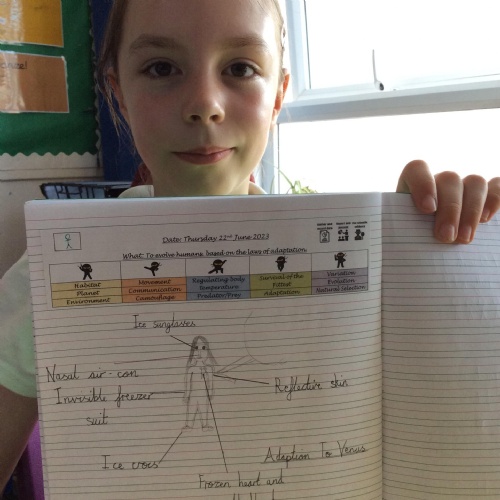 Date: Thursday 22nd June 2023
What: To evolve humans based on the laws of adaptation
Habitat
Planet
Environment
Movement
Communication
Camouflage
Regulating body
temperature
Predator/Prey
Survival of the
Fittest
Adaptation
Variation
Evolution
Natural Selection
Ice sunglasses
Nasal air-con
Invisible freezer
suit
Reflective skin
Ice crocs
Adaption To Venus
Frozen heart and